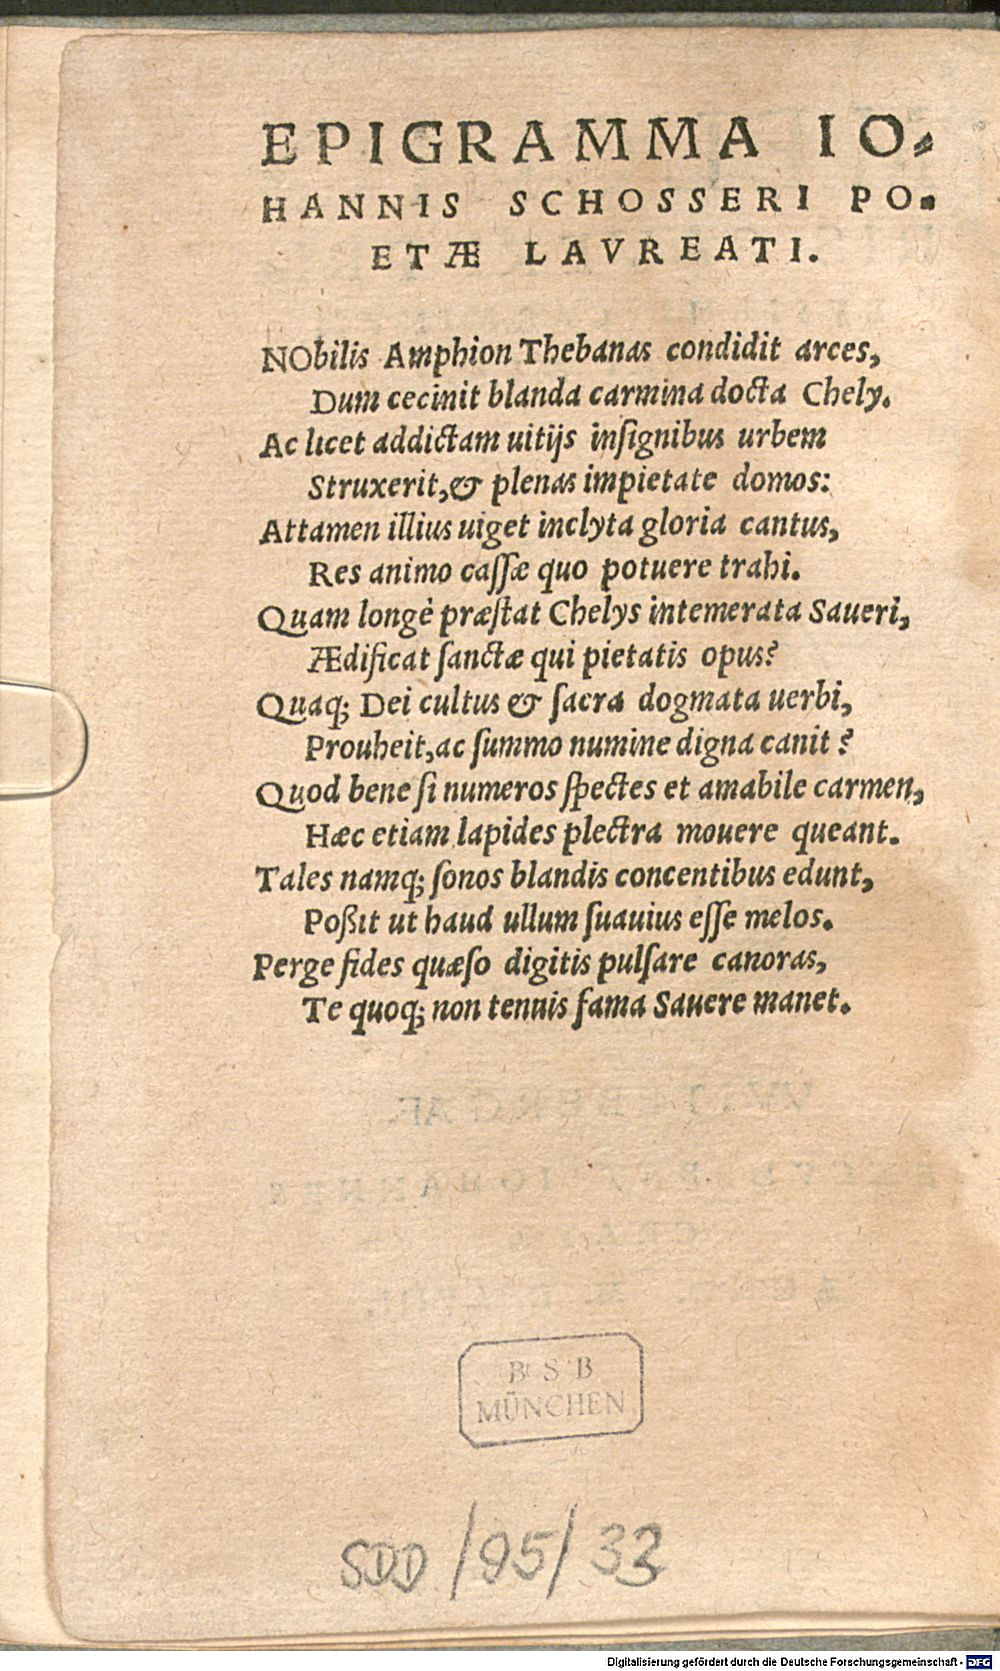 EPIGRAMMA IO-
HANNIS SCHOSSERI PO-
ETÆ LAVREATI.
NObilis Amphion Thebanas condidit arces,
Dum cecinit blanda carmina docta Chely.
Ac licet addictam uitijs insignibus urbem
Struxerit, & plenas impietate domos:
Attamen illius uiget inclyta gloria cantus,
Res animo cassæ quo potuere trahi.
Quam longè præstat Chelys intemerata Saueri,
Ædificat sanctæ qui pietatis opus?
Quaq; Dei cultus & sacra dogmata uerbi,
Prouheit, ac summo numine digna canit?
Quod bene si numeros spectes et amabile carmen,
Hæc etiam lapides plectra mouere queant.
Tales namq; sonos blandis concentibus edunt,
Poßit ut haud ullum suauius esse melos.
Perge fides quæso digitis pulsare canoras,
Te quoq; non tenuis fama Sauere manet.
B S B
MÜNCHEN
SDD/95/33
Digitalisierung gefördert durch die Deutsche Forschungsgemeinschaft - DFG